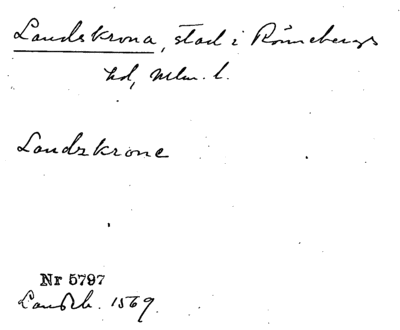 Landskrona, stad i Rönnebergs
hd, Mlm. l.
Landzkrone
Nr 5797
Landtb. 1569.